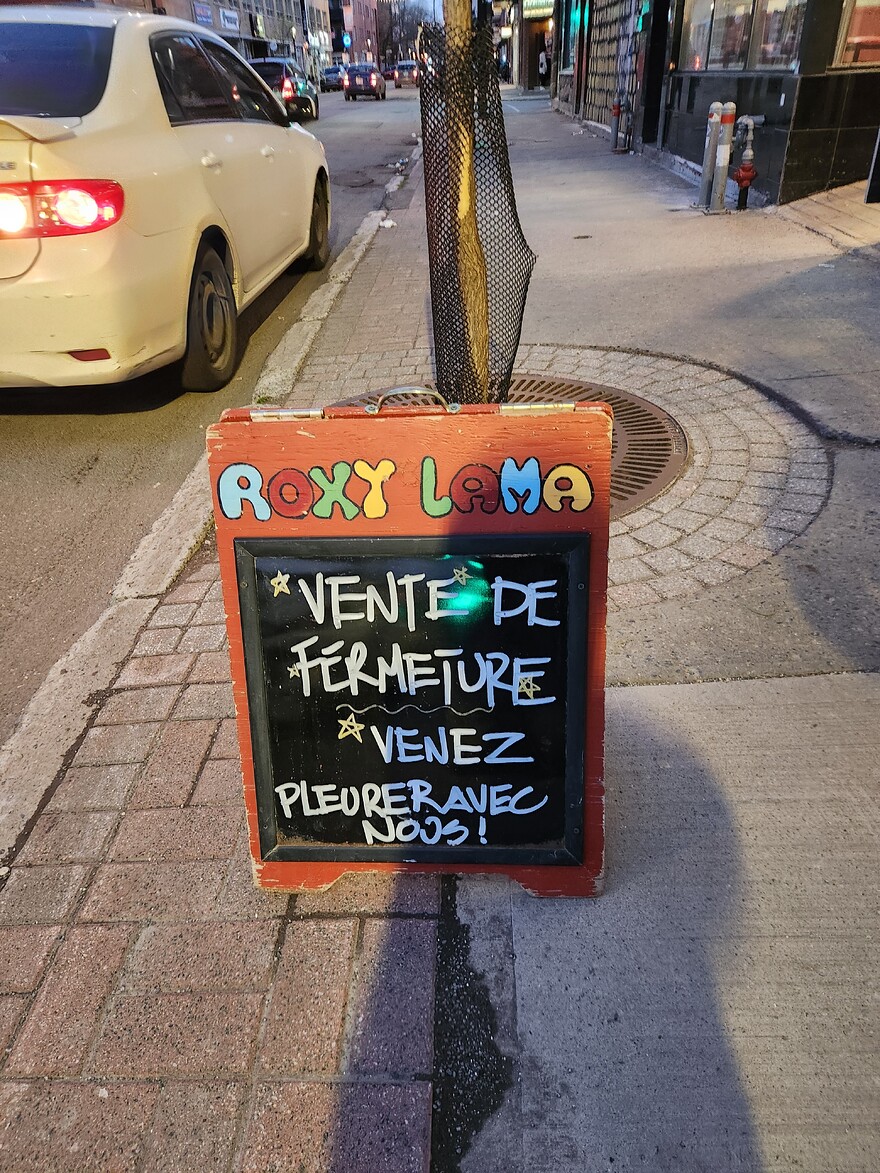 ROXY LAMA
VENTE DE
FERMETURE
VENEZ
PLEURER AVEC
NOUS!